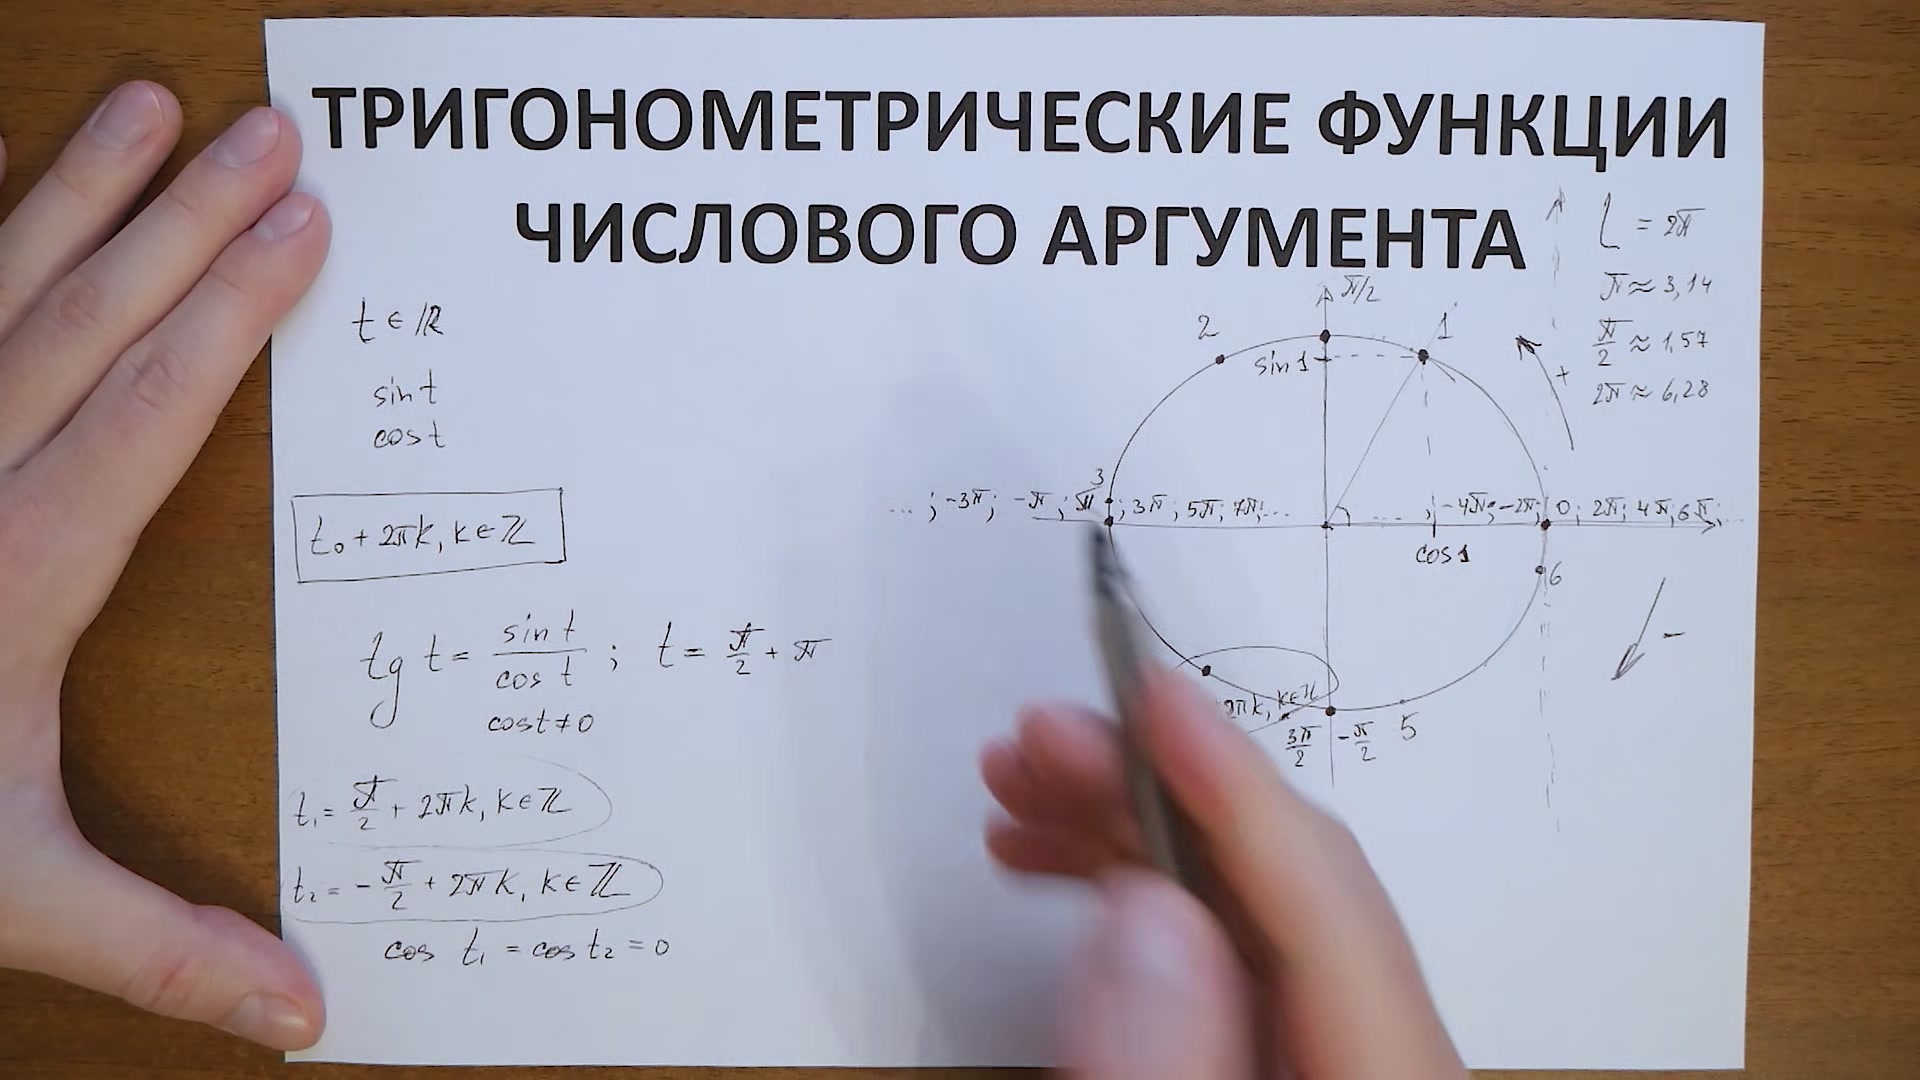 ТРИГОНОМЕТРИЧЕСКИЕ ФУНКЦИИ
ЧИСЛОВОГО АРГУМЕНТА
t ∈ ℝ
sin t
cos t
t₀ + 2πk, k ∈ ℤ
tg t = sin t / cos t ; t = π/2 + π
cos t ≠ 0
t₁ = π/2 + 2πk, k ∈ ℤ
t₂ = - π/2 + 2πk, k ∈ ℤ
cos t₁ = cos t₂ = 0
L = 2π
π ≈ 3,14
π/2 ≈ 1,57
2π ≈ 6,28
π/2
2
1
sin 1
+
3
... ; -3π; -π; π; 3π; 5π; 7π; ...
... ; -4π; -2π; 0; 2π; 4π; 6π; ...
cos 1
6
-
2πk, k ∈ ℤ
3π/2
-π/2
5